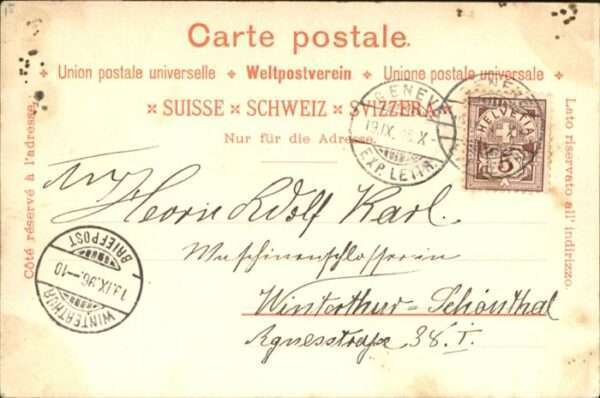 Carte postale.
Union postale universelle ✦ Weltpostverein ✦ Unione postale universale
✕ SUISSE ✕ SCHWEIZ ✕ SVIZZERA ✕
Nur für die Adresse.
Côté réservé à l'adresse.
Lato riservato all' indirizzo.
EXP. LETTR.
HELVETIA
5
Adolf Karl.
Winterthur-Schönthal
Agnesstraße 38. I.
WINTERTHUR
BRIEFPOST
IX.96.-10